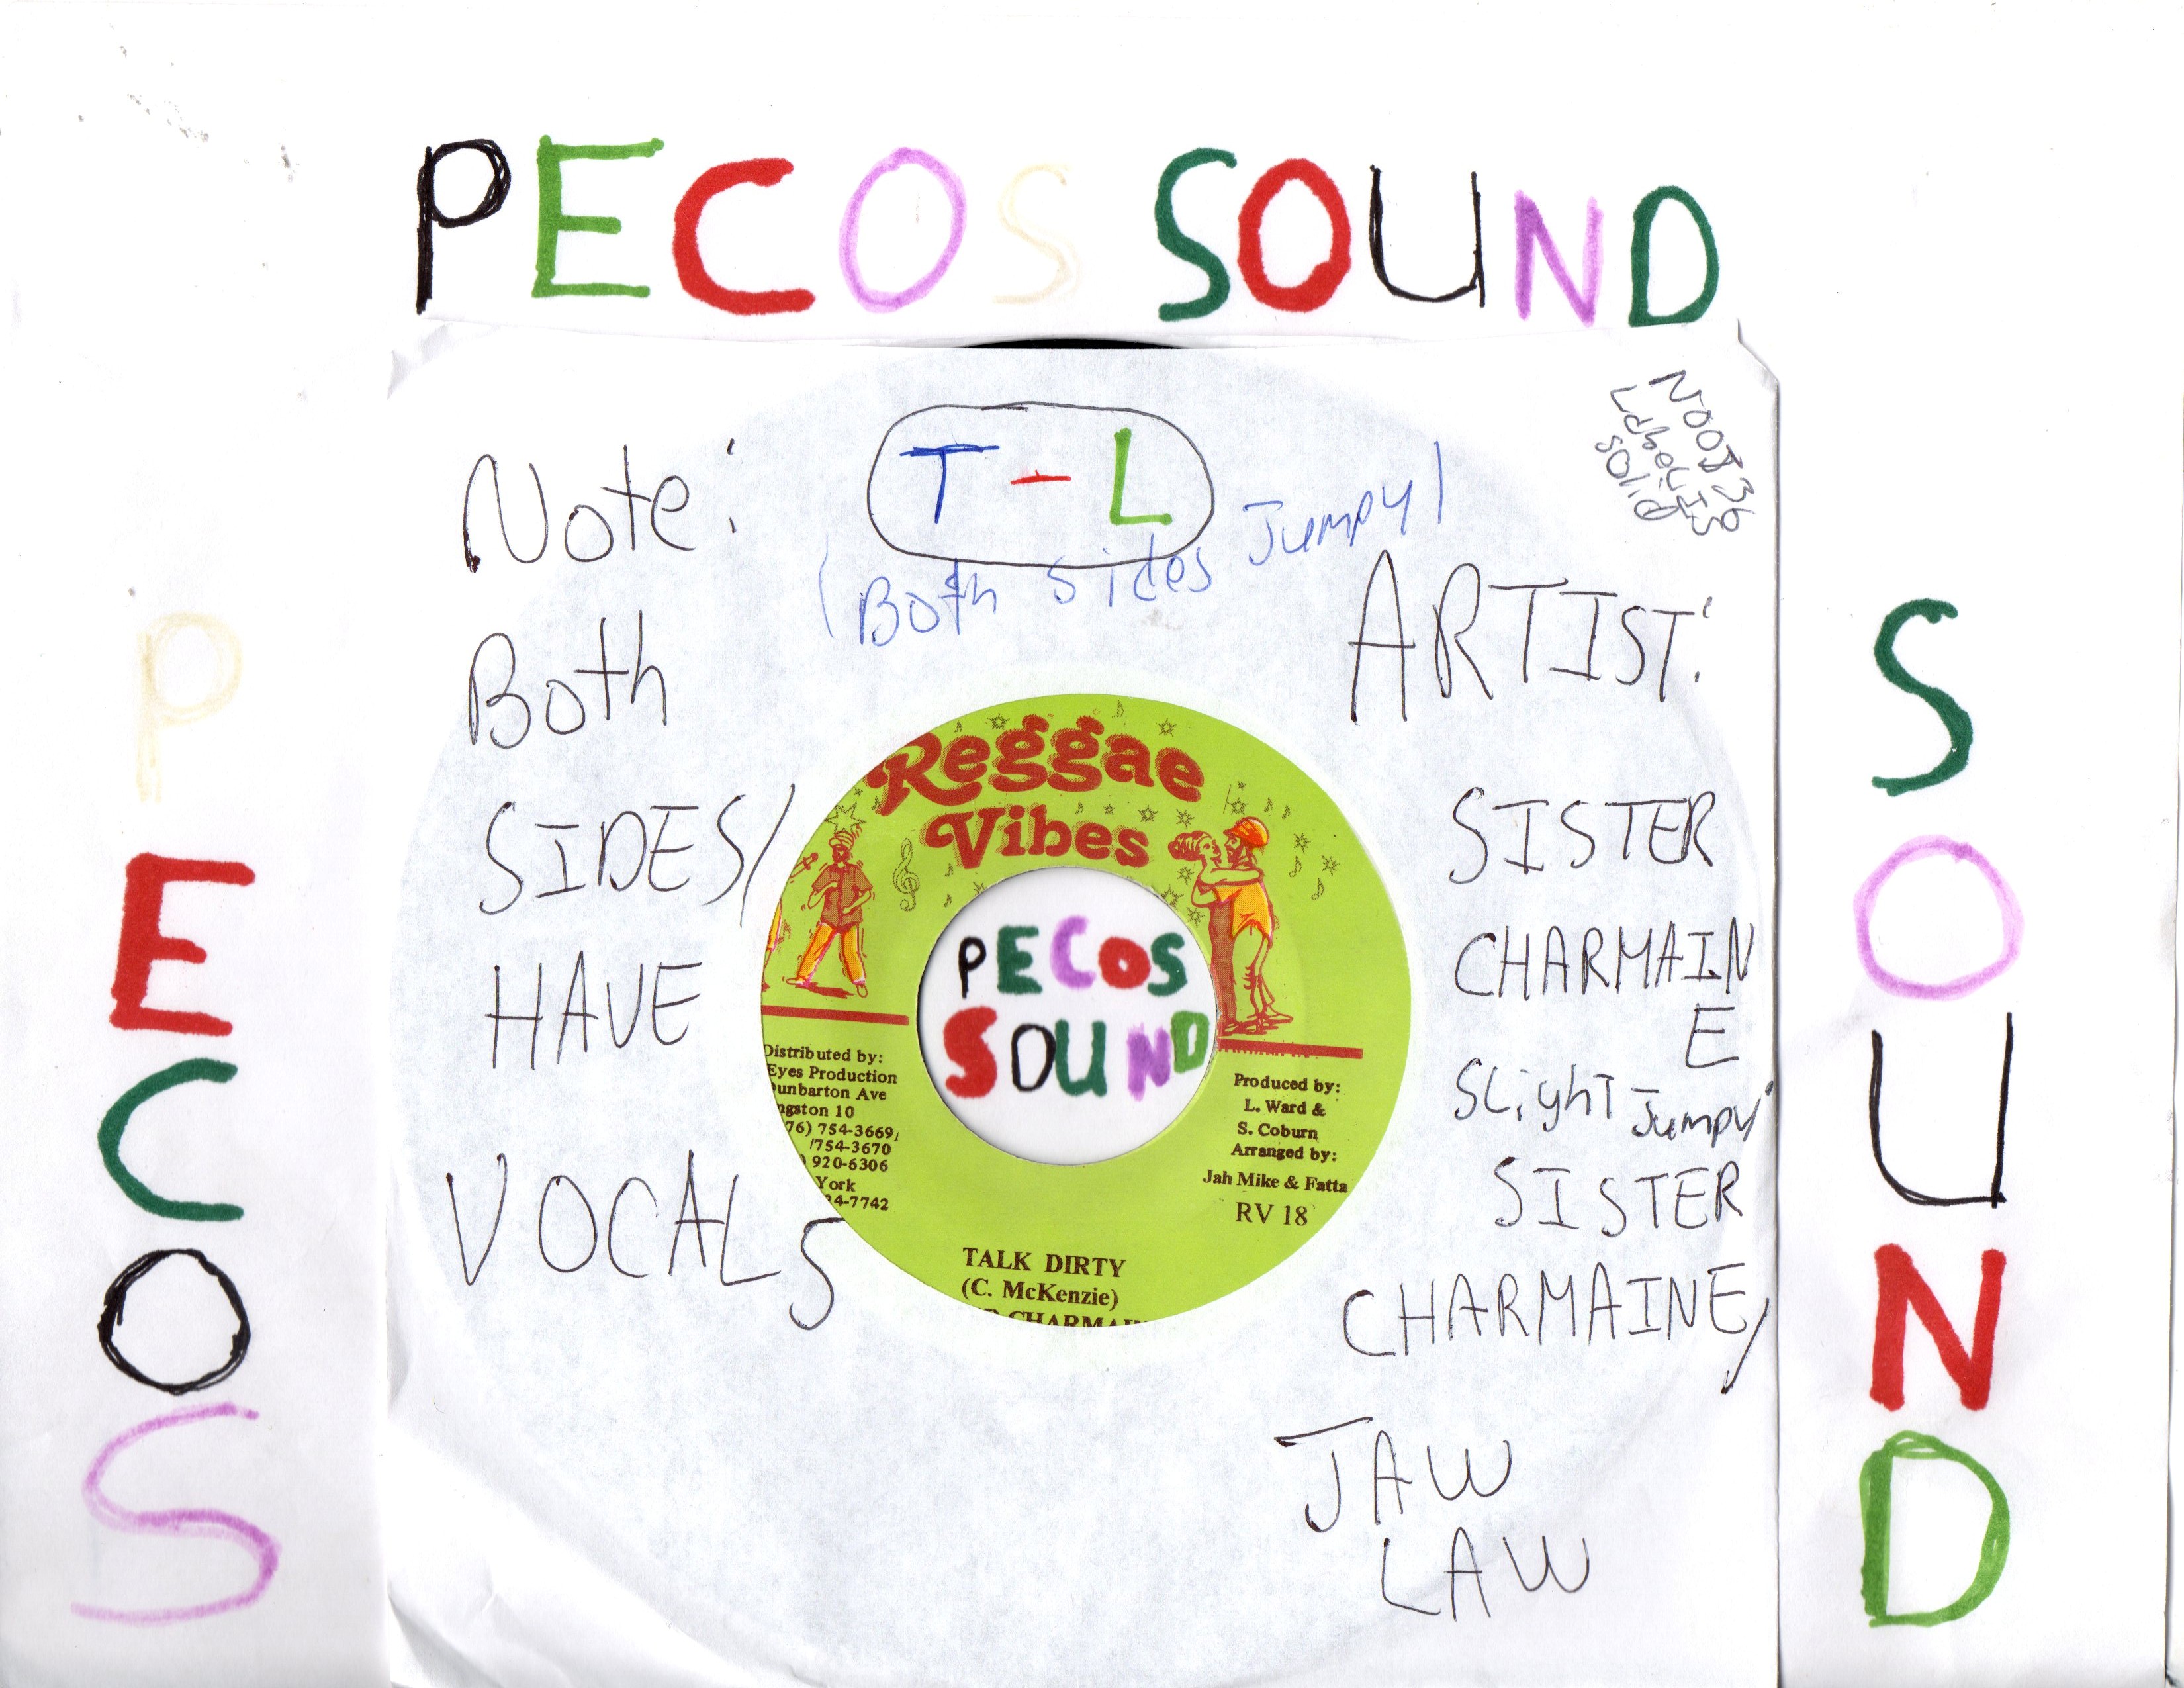 PECOS SOUND
T - L
(Both sides Jumpy)
Note:
Both
SIDES/
HAVE
VOCALS
Label is
solid
ARTIST:
SISTER
CHARMAIN
E
Slight Jumpy
SISTER
CHARMAINE/
JAW
LAW
Reggae
Vibes
PECOS
SOUND
Distributed by:
Eyes Production
unbarton Ave
ngston 10
76) 754-3669/
/754-3670
) 920-6306
York
24-7742
Produced by:
L. Ward &
S. Coburn
Arranged by:
Jah Mike & Fatta
RV 18
TALK DIRTY
(C. McKenzie)
CHARMAI
PECOS
SOUND